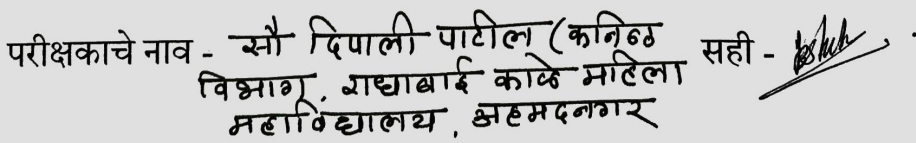 परीक्षकाचे नाव - सौ दिपाली पाटील (कनिष्ठ सही -
विभाग, राधाबाई काळे महिला
महाविद्यालय, अहमदनगर